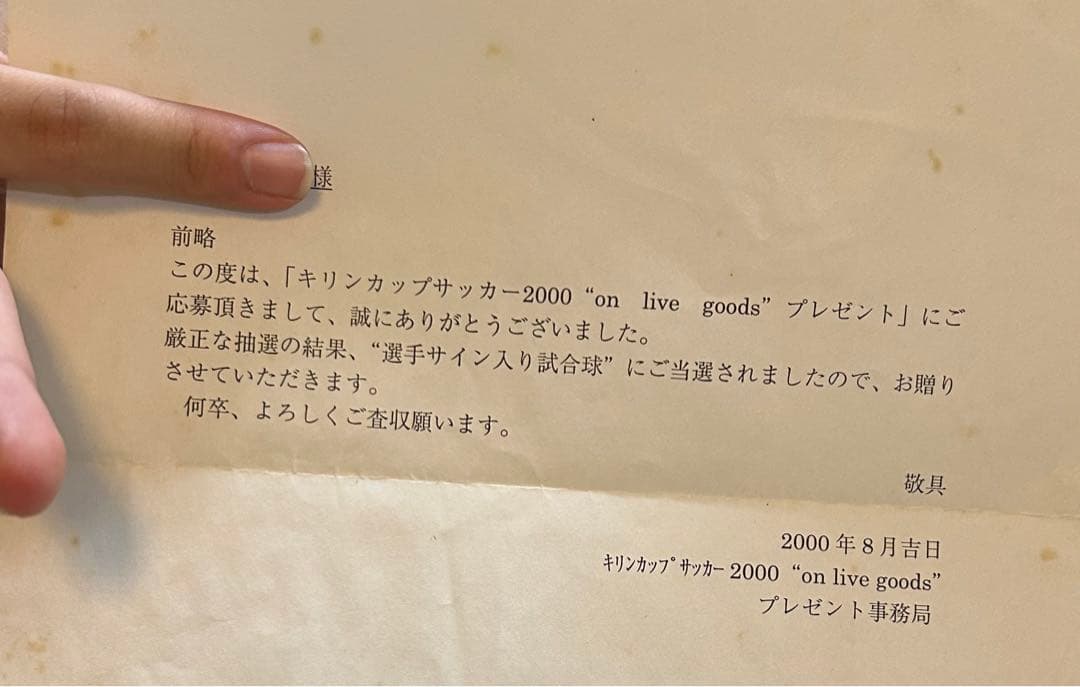 様
前略
この度は、「キリンカップサッカー2000 “on live goods” プレゼント」にご
応募頂きまして、誠にありがとうございました。
厳正な抽選の結果、“選手サイン入り試合球” にご当選されましたので、お贈り
させていただきます。
何卒、よろしくご査収願います。
敬具
2000 年 8 月吉日
ｷﾘﾝｶｯﾌﾟｻｯｶｰ 2000 “on live goods”
プレゼント事務局